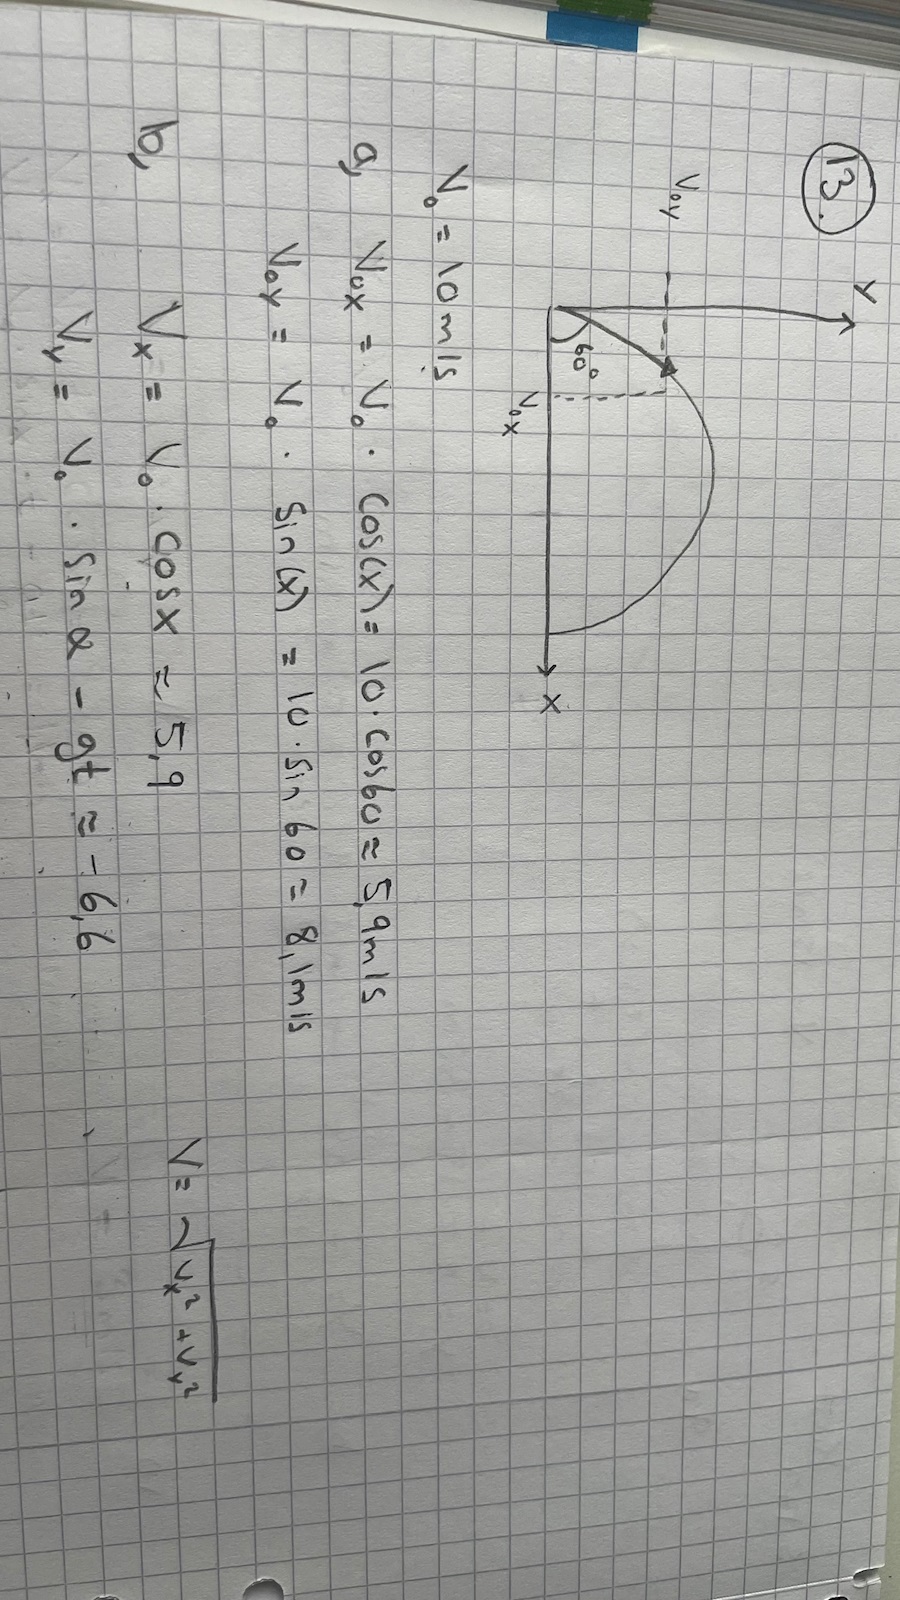 13.
y
V₀y
60°
V₀x
x
V₀ = 10 m/s
a, V₀x = V₀ · cos(x) = 10 · cos60 ≈ 5,9 m/s
V₀y = V₀ · sin(x) = 10 · sin 60 = 8,1 m/s
b, Vx = V₀ · cosx ≈ 5,9
V = √Vx² + Vy²
Vy = V₀ · sin α - gt ≈ -6,6